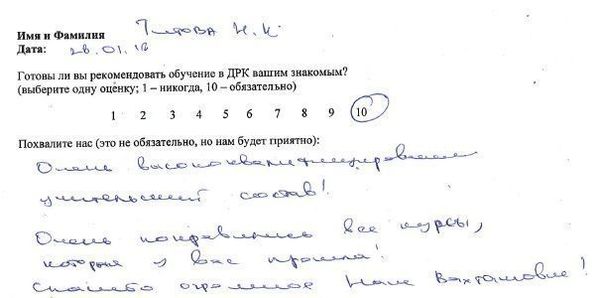 Имя и Фамилия Титова Н.К.
Дата: 28.01.18
Готовы ли вы рекомендовать обучение в ДРК вашим знакомым?
(выберите одну оценку; 1 – никогда, 10 – обязательно)
1 2 3 4 5 6 7 8 9 10
Похвалите нас (это не обязательно, но нам будет приятно):
Очень высококвалифицированный
учительский состав!
Очень понравились все курсы,
которые у вас прошла!
Спасибо огромное Нане Вахтанговне!